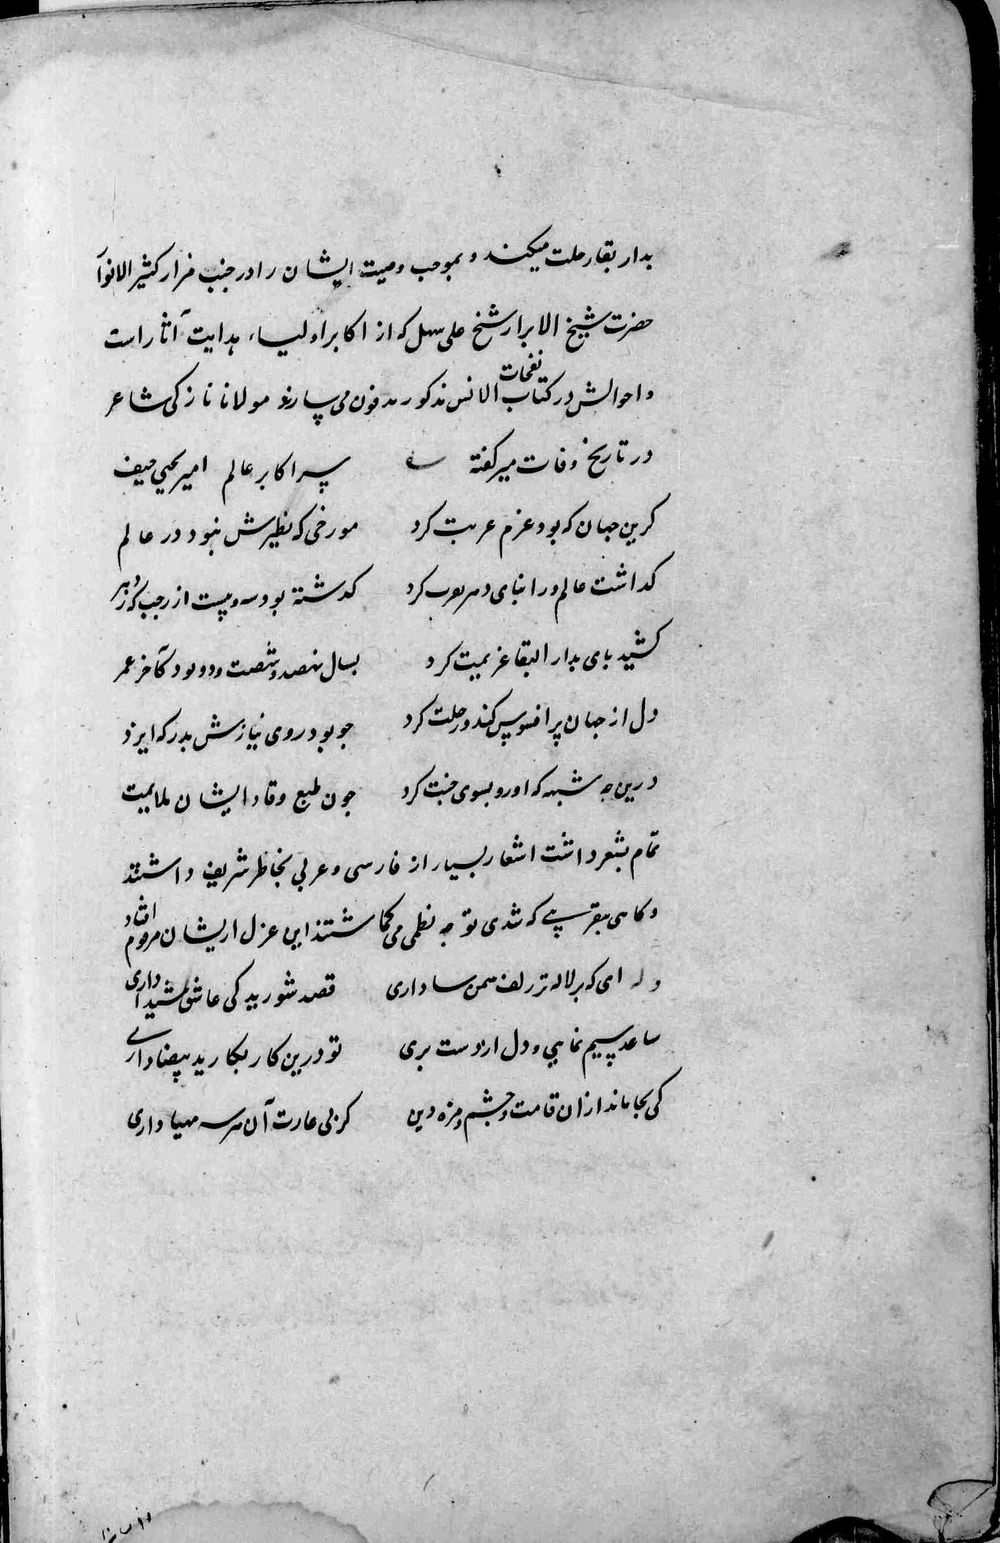 بدار بقا رحلت میکند و بموجب وصیت ایشان را در جنب مزار کثیر الانوار
حضرت شیخ الابرار شیخ علی سهل که از اکابر اولیاء هدایت آثار است
و احوالش در کتاب نفحات الانس مذکور مدفون می سپارند مولانا نازکی شاعر
در تاریخ وفات میر گفته سر اکابر عالم امیر یحیی حیف
کزین جهان که بود عزم غربت کرد مورخی که نظیرش نبود در عالم
گذاشت عالم و را نبای دهر کرد گذشته بود سه و بیست از رجب که ز دهر
کشید پای بدار البقا عزیمت کرد بسال نهصد و شصت و دو بود کآخر عمر
دل از جهان پر افسوس کند و رحلت کرد چو بود روی نیازش بدرگه ایزد
درین چه شبهه که او رو بسوی جنت کرد چون طبع وقاد ایشان ملایمت
تمام بشعر داشت اشعار بسیار از فارسی و عربی بخاطر شریف داشتند
و گاهی بتقریبی که شدی توجه بنظمی می گماشتند این غزل از ایشان مرقوم افتاد
وله ای که بر لاله تر زلف سمن سا داری قصد شوریدگی عاشق شیدا داری
ساعد سیم نمایی و دل از دست بری تو درین کار نگارید بیضا داری
کی بجا ماند از آن قامت و چشم و مژه دین کز پی غارت آن هر سه مهیا داری